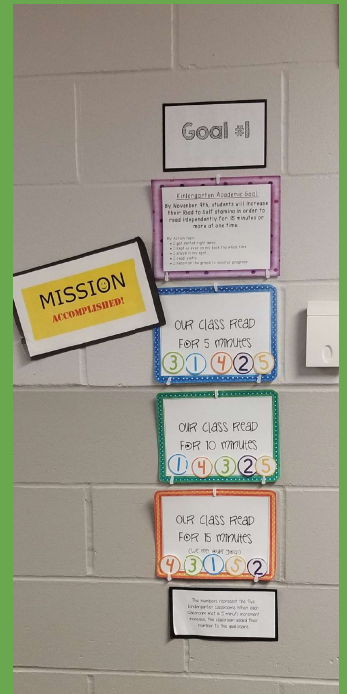 Goal #1
Kindergarten Academic Goal
By November 9th, students will increase
their Read to Self stamina in order to
read independently for 15 minutes or
more at one time.
MISSION
ACCOMPLISHED!
OUR CLASS READ
FOR 5 MINUTES
3 1 4 2 5
OUR CLASS READ
FOR 10 MINUTES
1 4 3 2 5
OUR CLASS READ
FOR 15 MINUTES
(we met our goal!)
4 3 1 5 2
The numbers represent the five
kindergarten classrooms. When each
classroom met a 5 minute increment
increase, the classroom added their
number to the goal board.